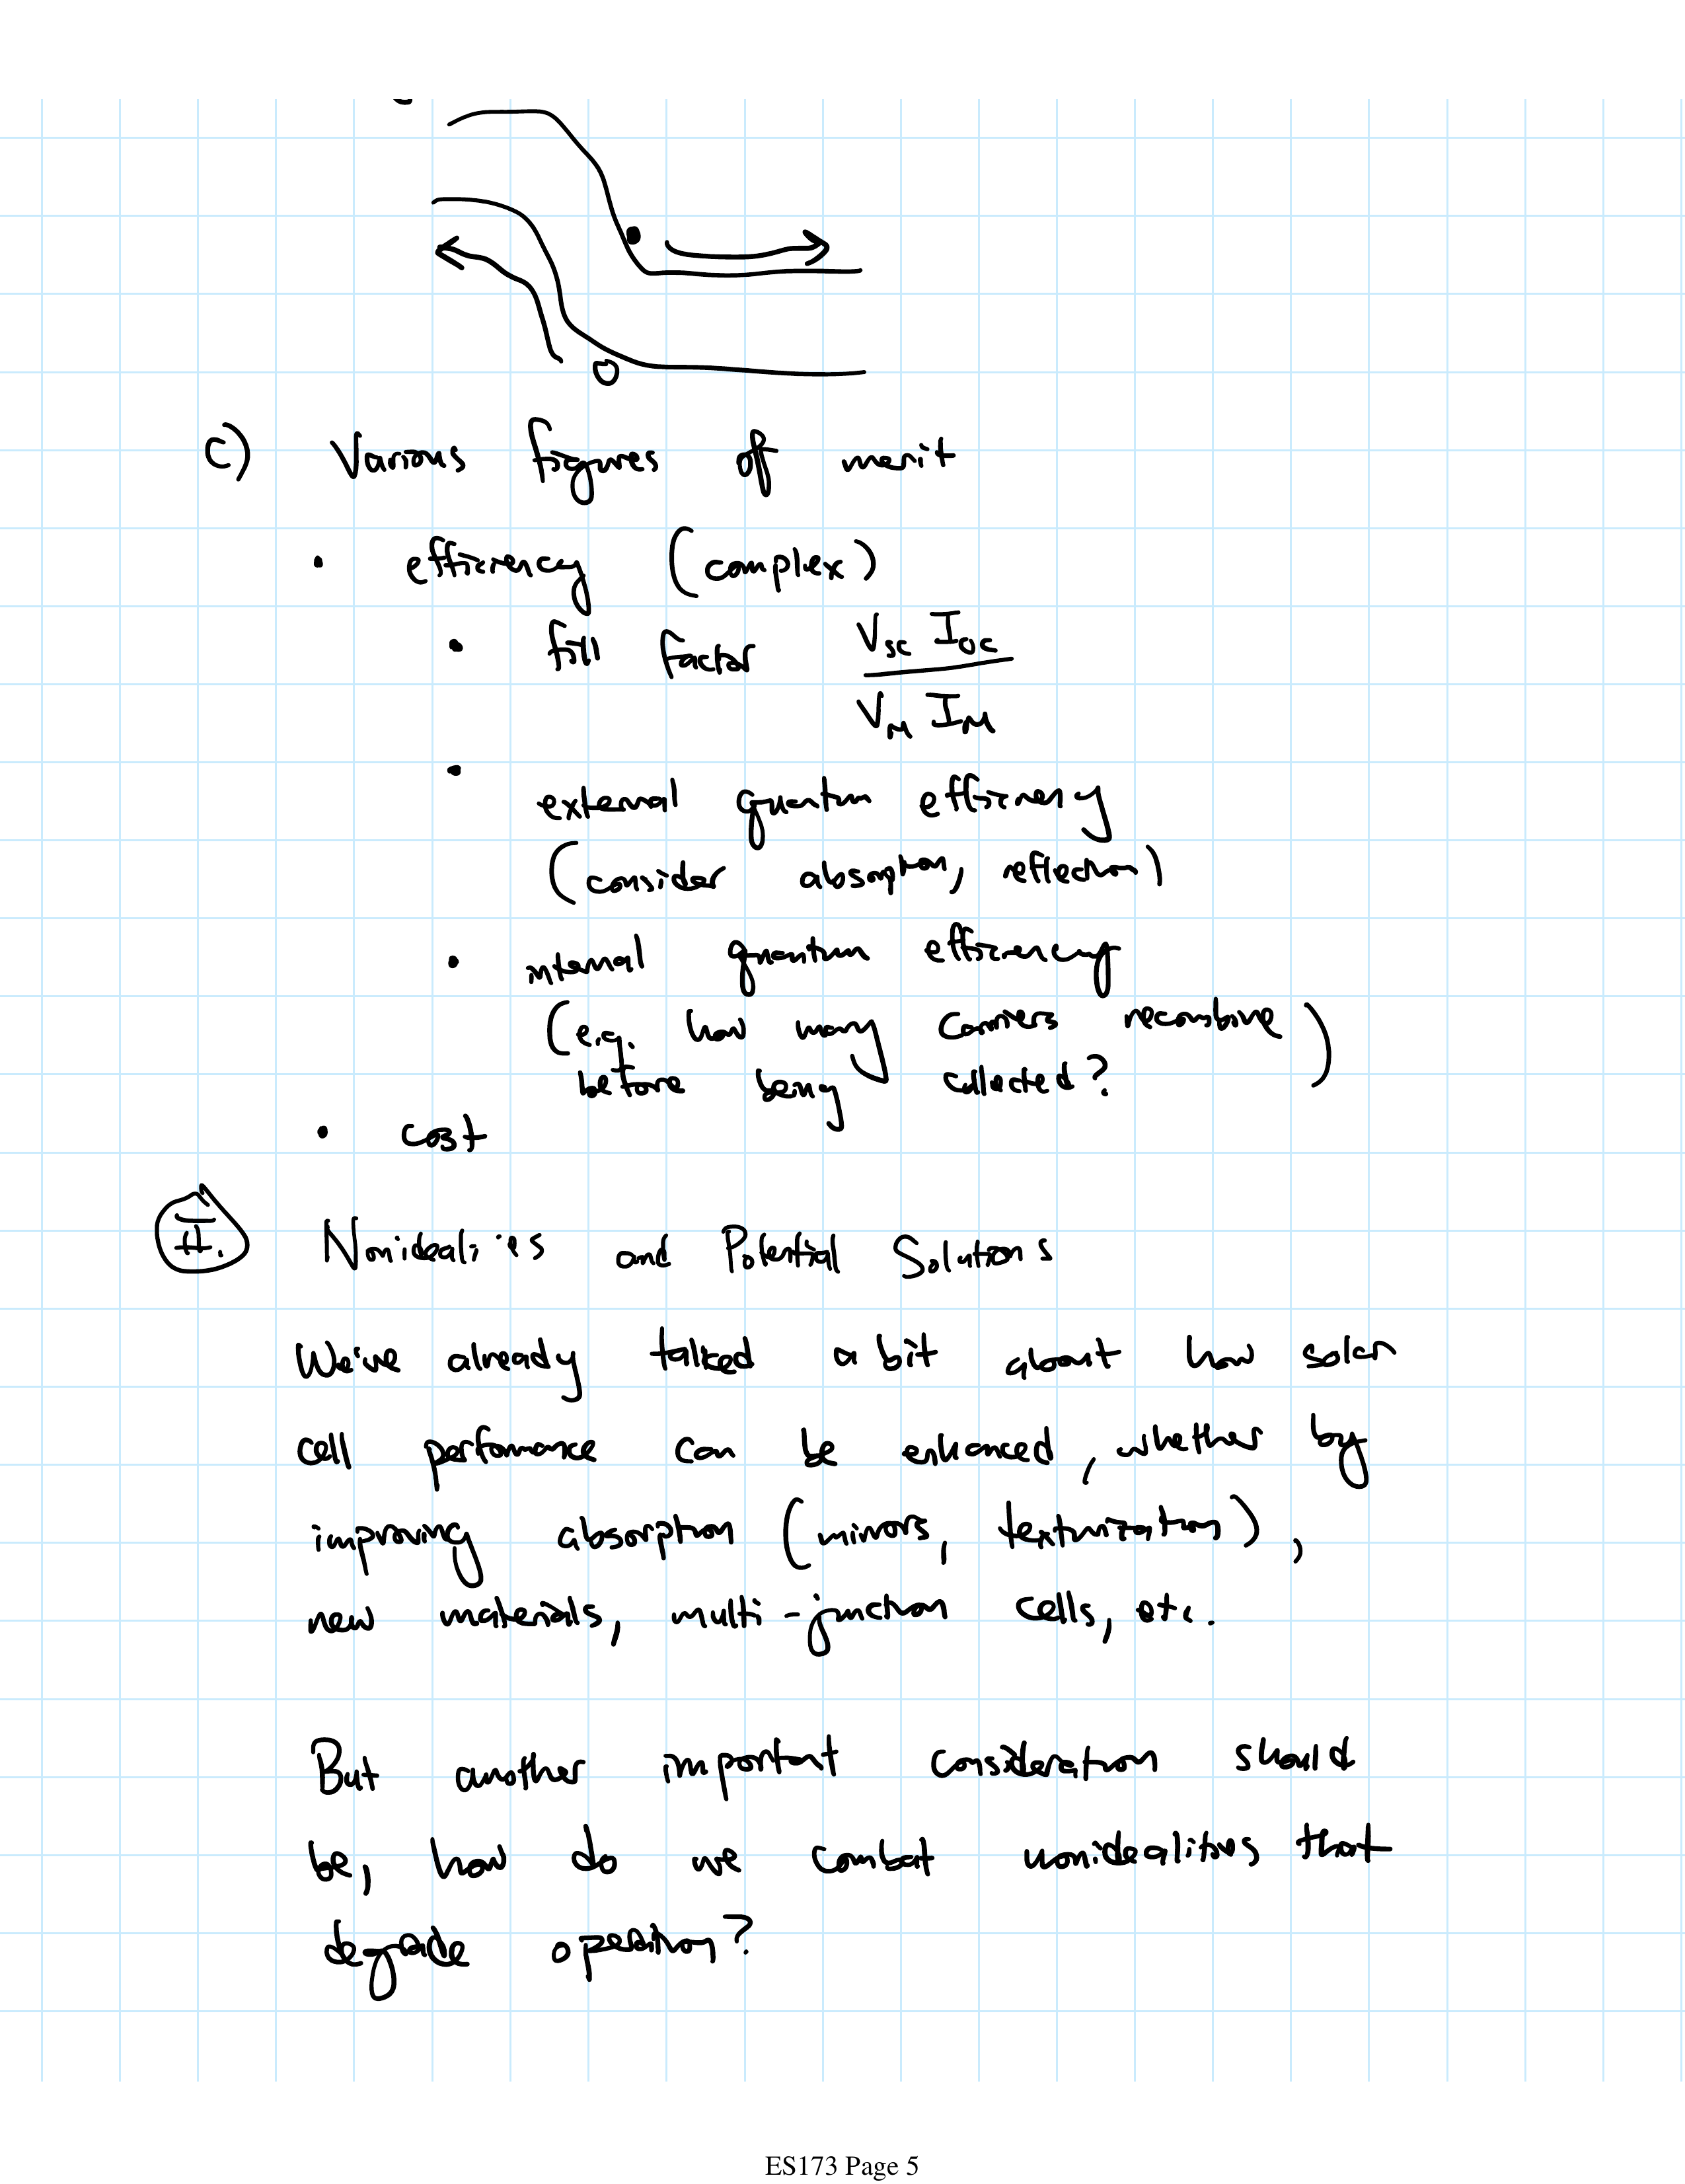 c) Various figures of merit
• efficiency (complex)
• fill factor V_SC I_OC / V_M I_M
• external quantum efficiency
(consider absorption, reflection)
• internal quantum efficiency
(e.g. how many carriers recombine
before being collected?)
• cost
II. Nonidealities and Potential Solutions
We've already talked a bit about how solar
cell performance can be enhanced, whether by
improving absorption (mirrors, texturization),
new materials, multi-junction cells, etc.
But another important consideration should
be, how do we combat nonidealities that
degrade operation?
ES173 Page 5